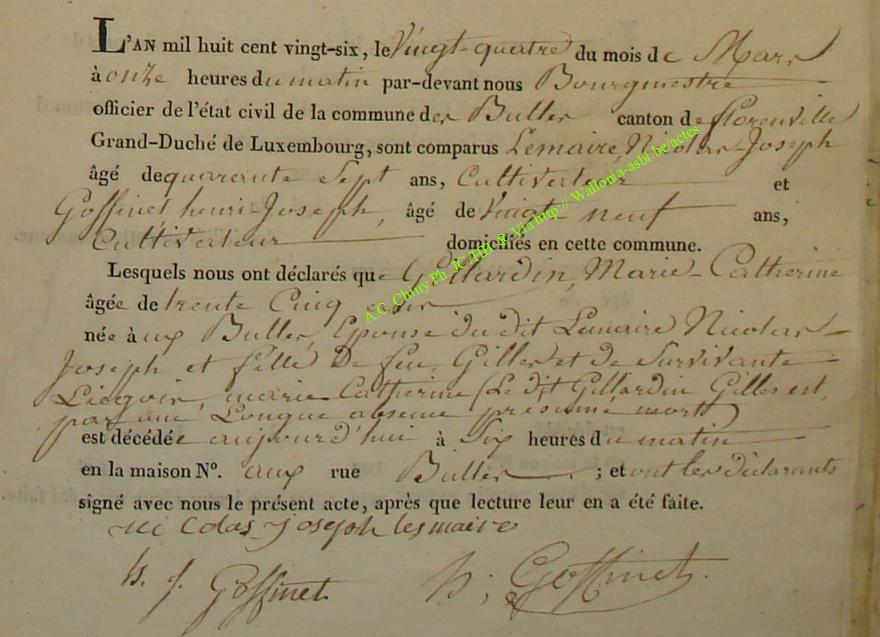 L'AN mil huit cent vingt-six, le Vingt-quatre du mois de Mars
à onze heures du matin par-devant nous Bourgmestre
officier de l'état civil de la commune des Bulles canton de florenville
Grand-Duché de Luxembourg, sont comparus Lemaire, Nicolas-Joseph
âgé de quarante Sept ans, Cultivateur et
Goffinet henri-Joseph, âgé de Vingt neuf ans,
Cultivateur domiciliés en cette commune.
Lesquels nous ont déclarés que Gillardin, Marie-Catherine
âgée de trente Cinq ans
née à aux Bulles, Epouse du dit Lemaire Nicolas-
Joseph et fille De feu Gilles et de Survivante
marie Catherine (Le dit Gillardin Gilles est,
par une Longue absence présumé mort)
est décédée aujourd'hui à Six heures du matin
en la maison N°. aux rue Bulles ; et ont les déclarants
signé avec nous le présent acte, après que lecture leur en a été faite.
nicolas joseph lesmaire
h. j. Goffinet h; Goffinet.
A.C. Chiny.Ph. JC.THILL Via http:// Wallonia-asbl.be/actes